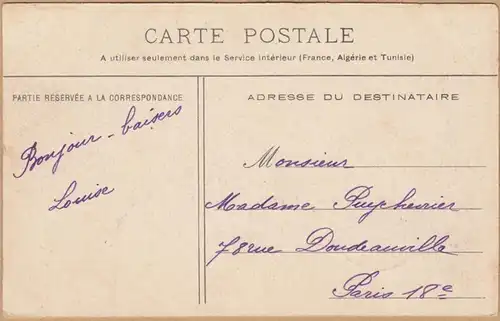 CARTE POSTALE
A utiliser seulement dans le Service intérieur (France, Algérie et Tunisie)
PARTIE RÉSERVÉE A LA CORRESPONDANCE
Bonjour - baisers
Louise
ADRESSE DU DESTINATAIRE
Monsieur
Madame Puychevrier
78 rue Doudeauville
Paris 18e